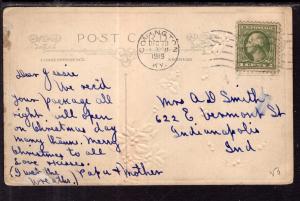 POST CARD
COVINGTON
DEC 23
1919
KY.
Dear Jessie
We rec'd
your package all
right, will open
on Christmas day
many thanks. Merry
Christmas to all
Love + kisses.
(I want the
wreaths.) Papa + Mother
Mrs A D Smith
622 E Vermont St
Indianapolis
Ind